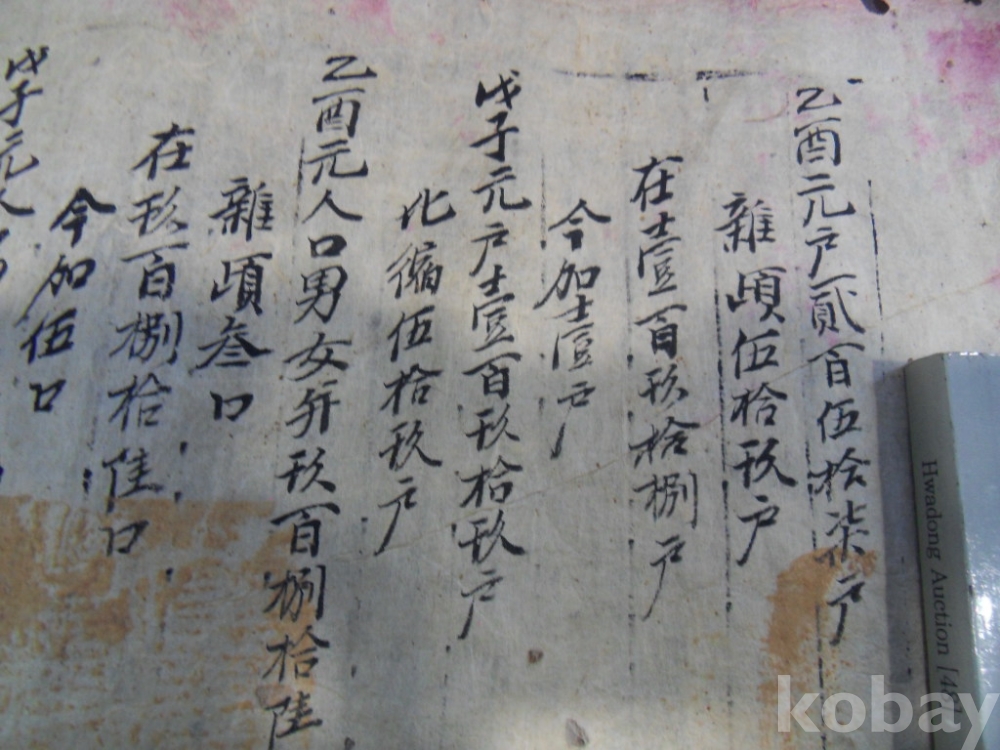 乙酉元戶貳百伍拾柒戶
雜頉伍拾玖戶
在壹百玖拾捌戶
今加壹戶
戊子元戶壹百玖拾玖戶
比縮伍拾玖戶
乙酉元人口男女幷玖百捌拾陸
雜頉叄口
在玖百捌拾陸口
今加伍口
戊子元人
Hwadong Auction
kobay